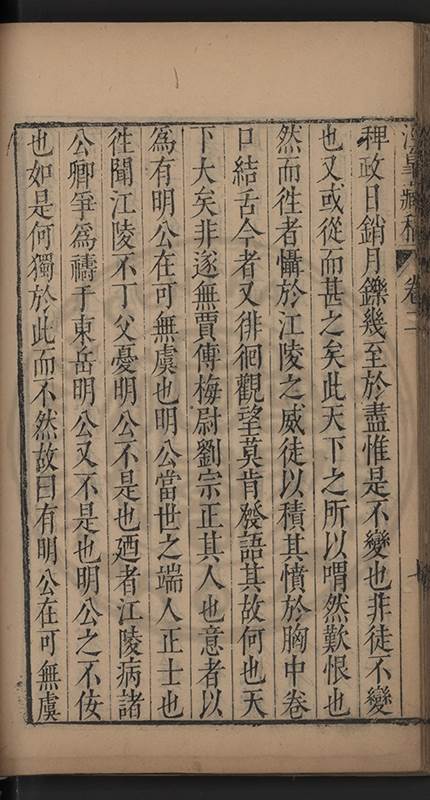 涇皋藏稿 卷二
稗政日銷月鑠幾至於盡惟是不變也非徒不變
也又或從而甚之矣此天下之所以喟然歎恨也
然而徃者懾於江陵之威徒以積其憤於胸中卷
口結舌今者又徘徊觀望莫肯發語其故何也天
下大矣非遂無賈傅梅尉劉宗正其人也意者以
為有明公在可無虞也明公當世之端人正士也
徃聞江陵不丁父憂明公不是也廼者江陵病諸
公卿爭為禱于東岳明公又不是也明公之不佞
也如是何獨於此而不然故曰有明公在可無虞